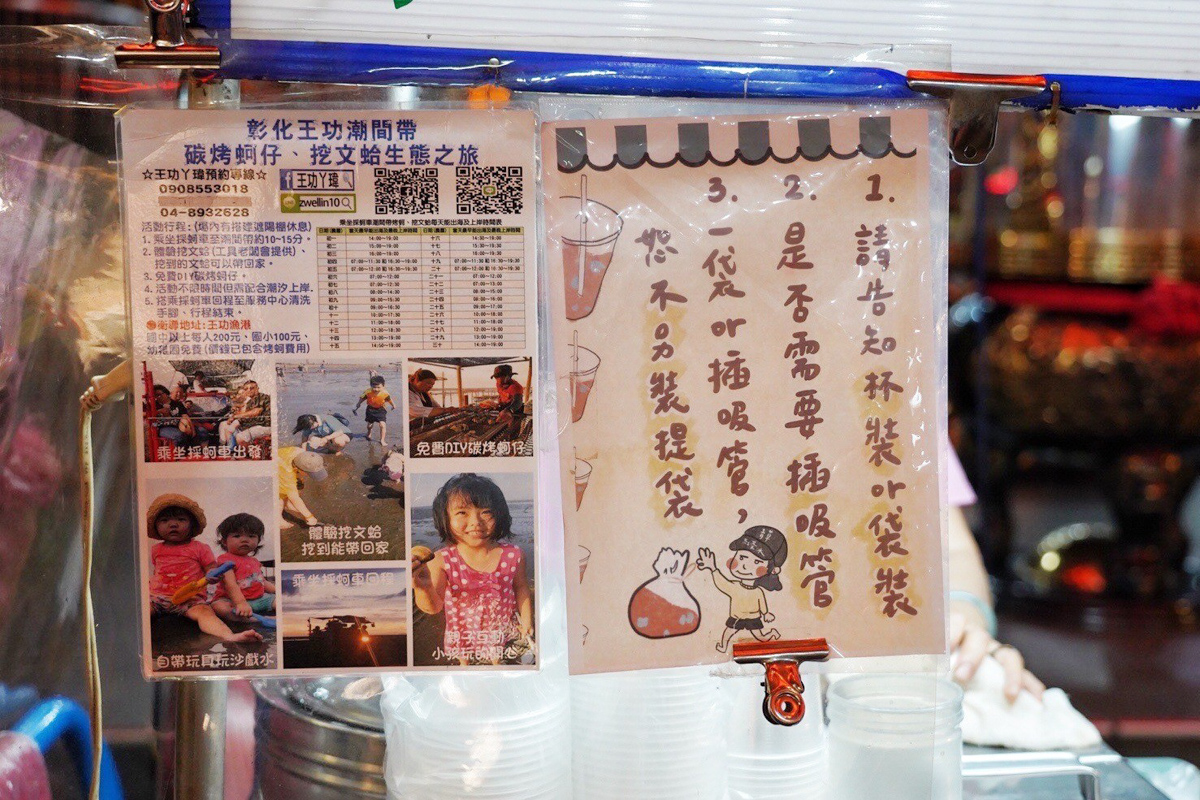 彰化王功潮間帶
碳烤蚵仔、挖文蛤生態之旅
☆王功丫瑋預約專線☆
0908553018
04-8932628
王功丫瑋
zwellin10
乘坐採蚵車潮間帶烤蚵、挖文蛤每天能出海及上岸時間表
活動行程:(場內有搭建遮陽棚休息)
1. 乘坐採蚵車至潮間帶約10~15分。
2. 體驗挖文蛤(工具老闆會提供)、
挖到的文蛤可以帶回家。
3. 免費DIY碳烤蚵仔。
4. 活動不限時間但需配合潮汐上岸.
5. 搭乘採蚵車回程至服務中心清洗
手腳、行程結束。
衛導地址:王功漁港
國中以上每人200元, 國小100元,
幼稚園免費(價錢已包含烤蚵費用)
乘坐採蚵車出發
體驗挖文蛤
挖到能帶回家
免費DIY碳烤蚵仔
自帶玩具玩沙戲水
乘坐採蚵車回程
親子互動
小孩玩的開心
1. 請告知杯裝or袋裝
2. 是否需要插吸管
3. 一袋or插吸管,
恕不另裝提袋